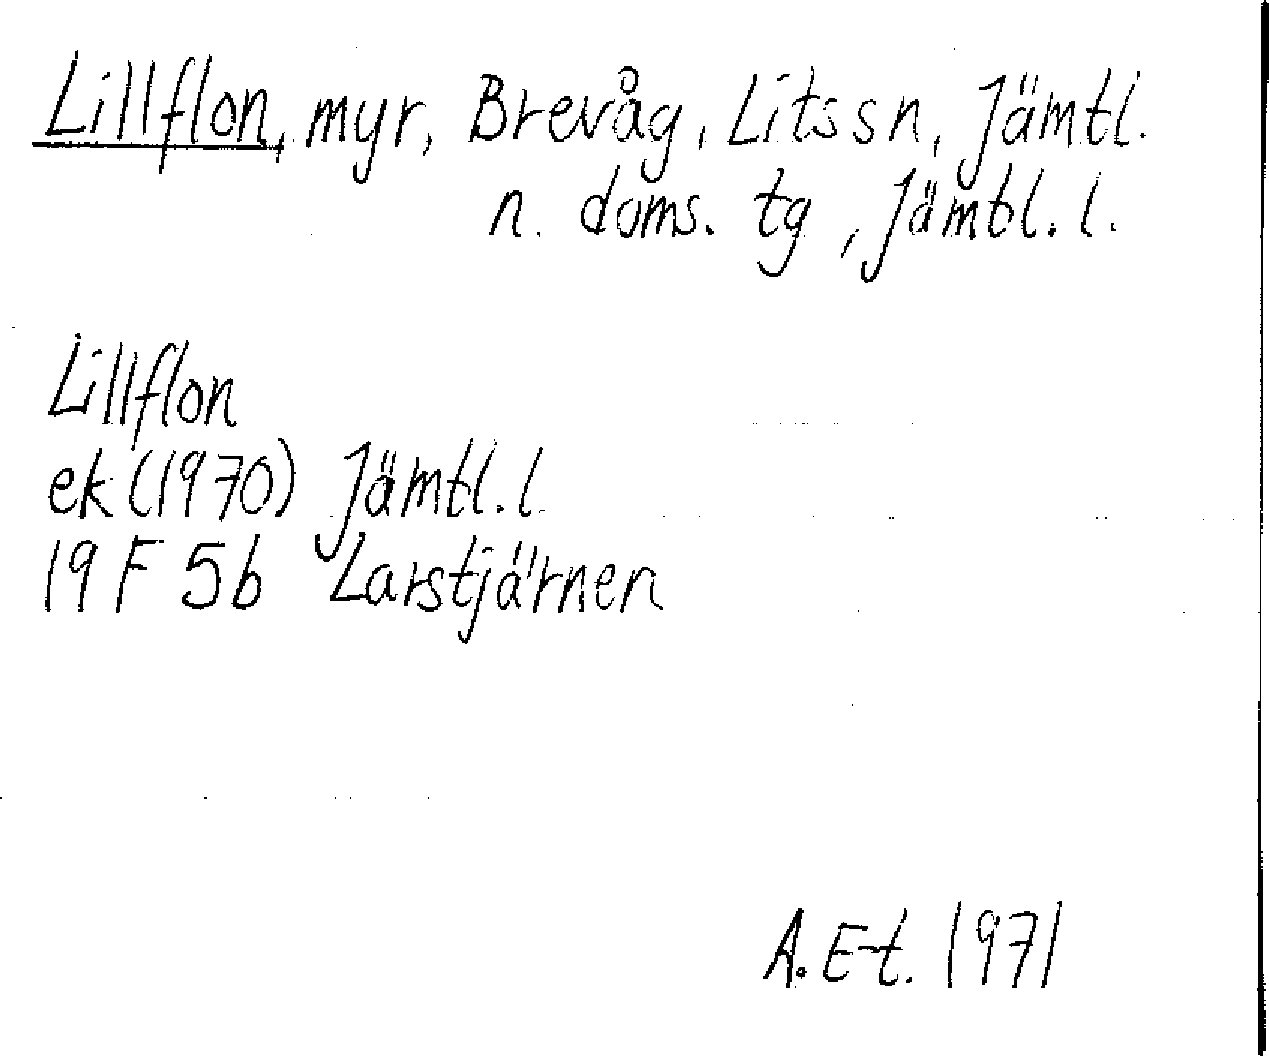 Lillflon, myr, Brevåg, Lits sn, Jämtl.
n. doms. tg, Jämtl. l.
Lillflon
ek (1970) Jämtl. l.
19 F 5b Larstjärnen
A. E-t. 1971